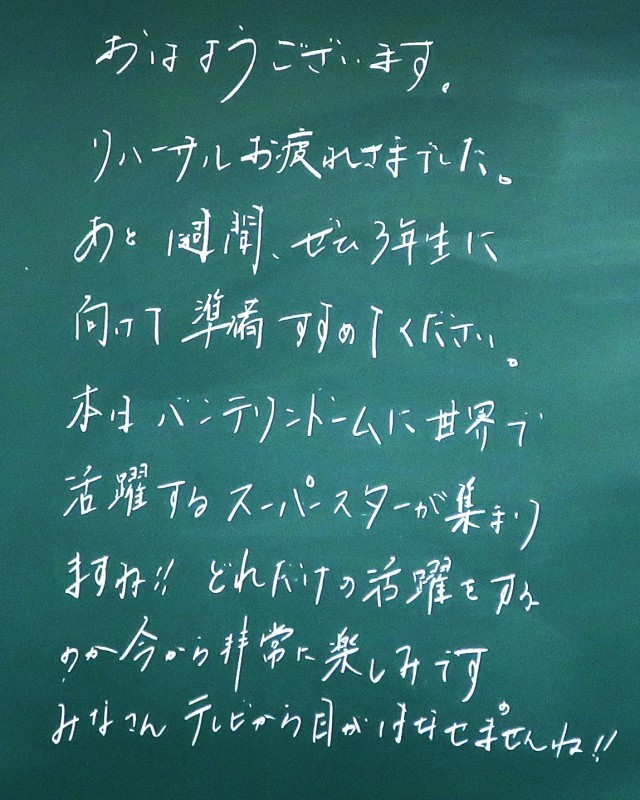 おはようございます。
リハーサルお疲れさまでした。
あと1週間、ぜひ3年生に
向けて準備すすめてください。
本日バンテリンドームに世界で
活躍するスーパースターが集まり
ますね!! どれだけの活躍をする
のか今から非常に楽しみです
みなさんテレビから目がはなせませんね!!